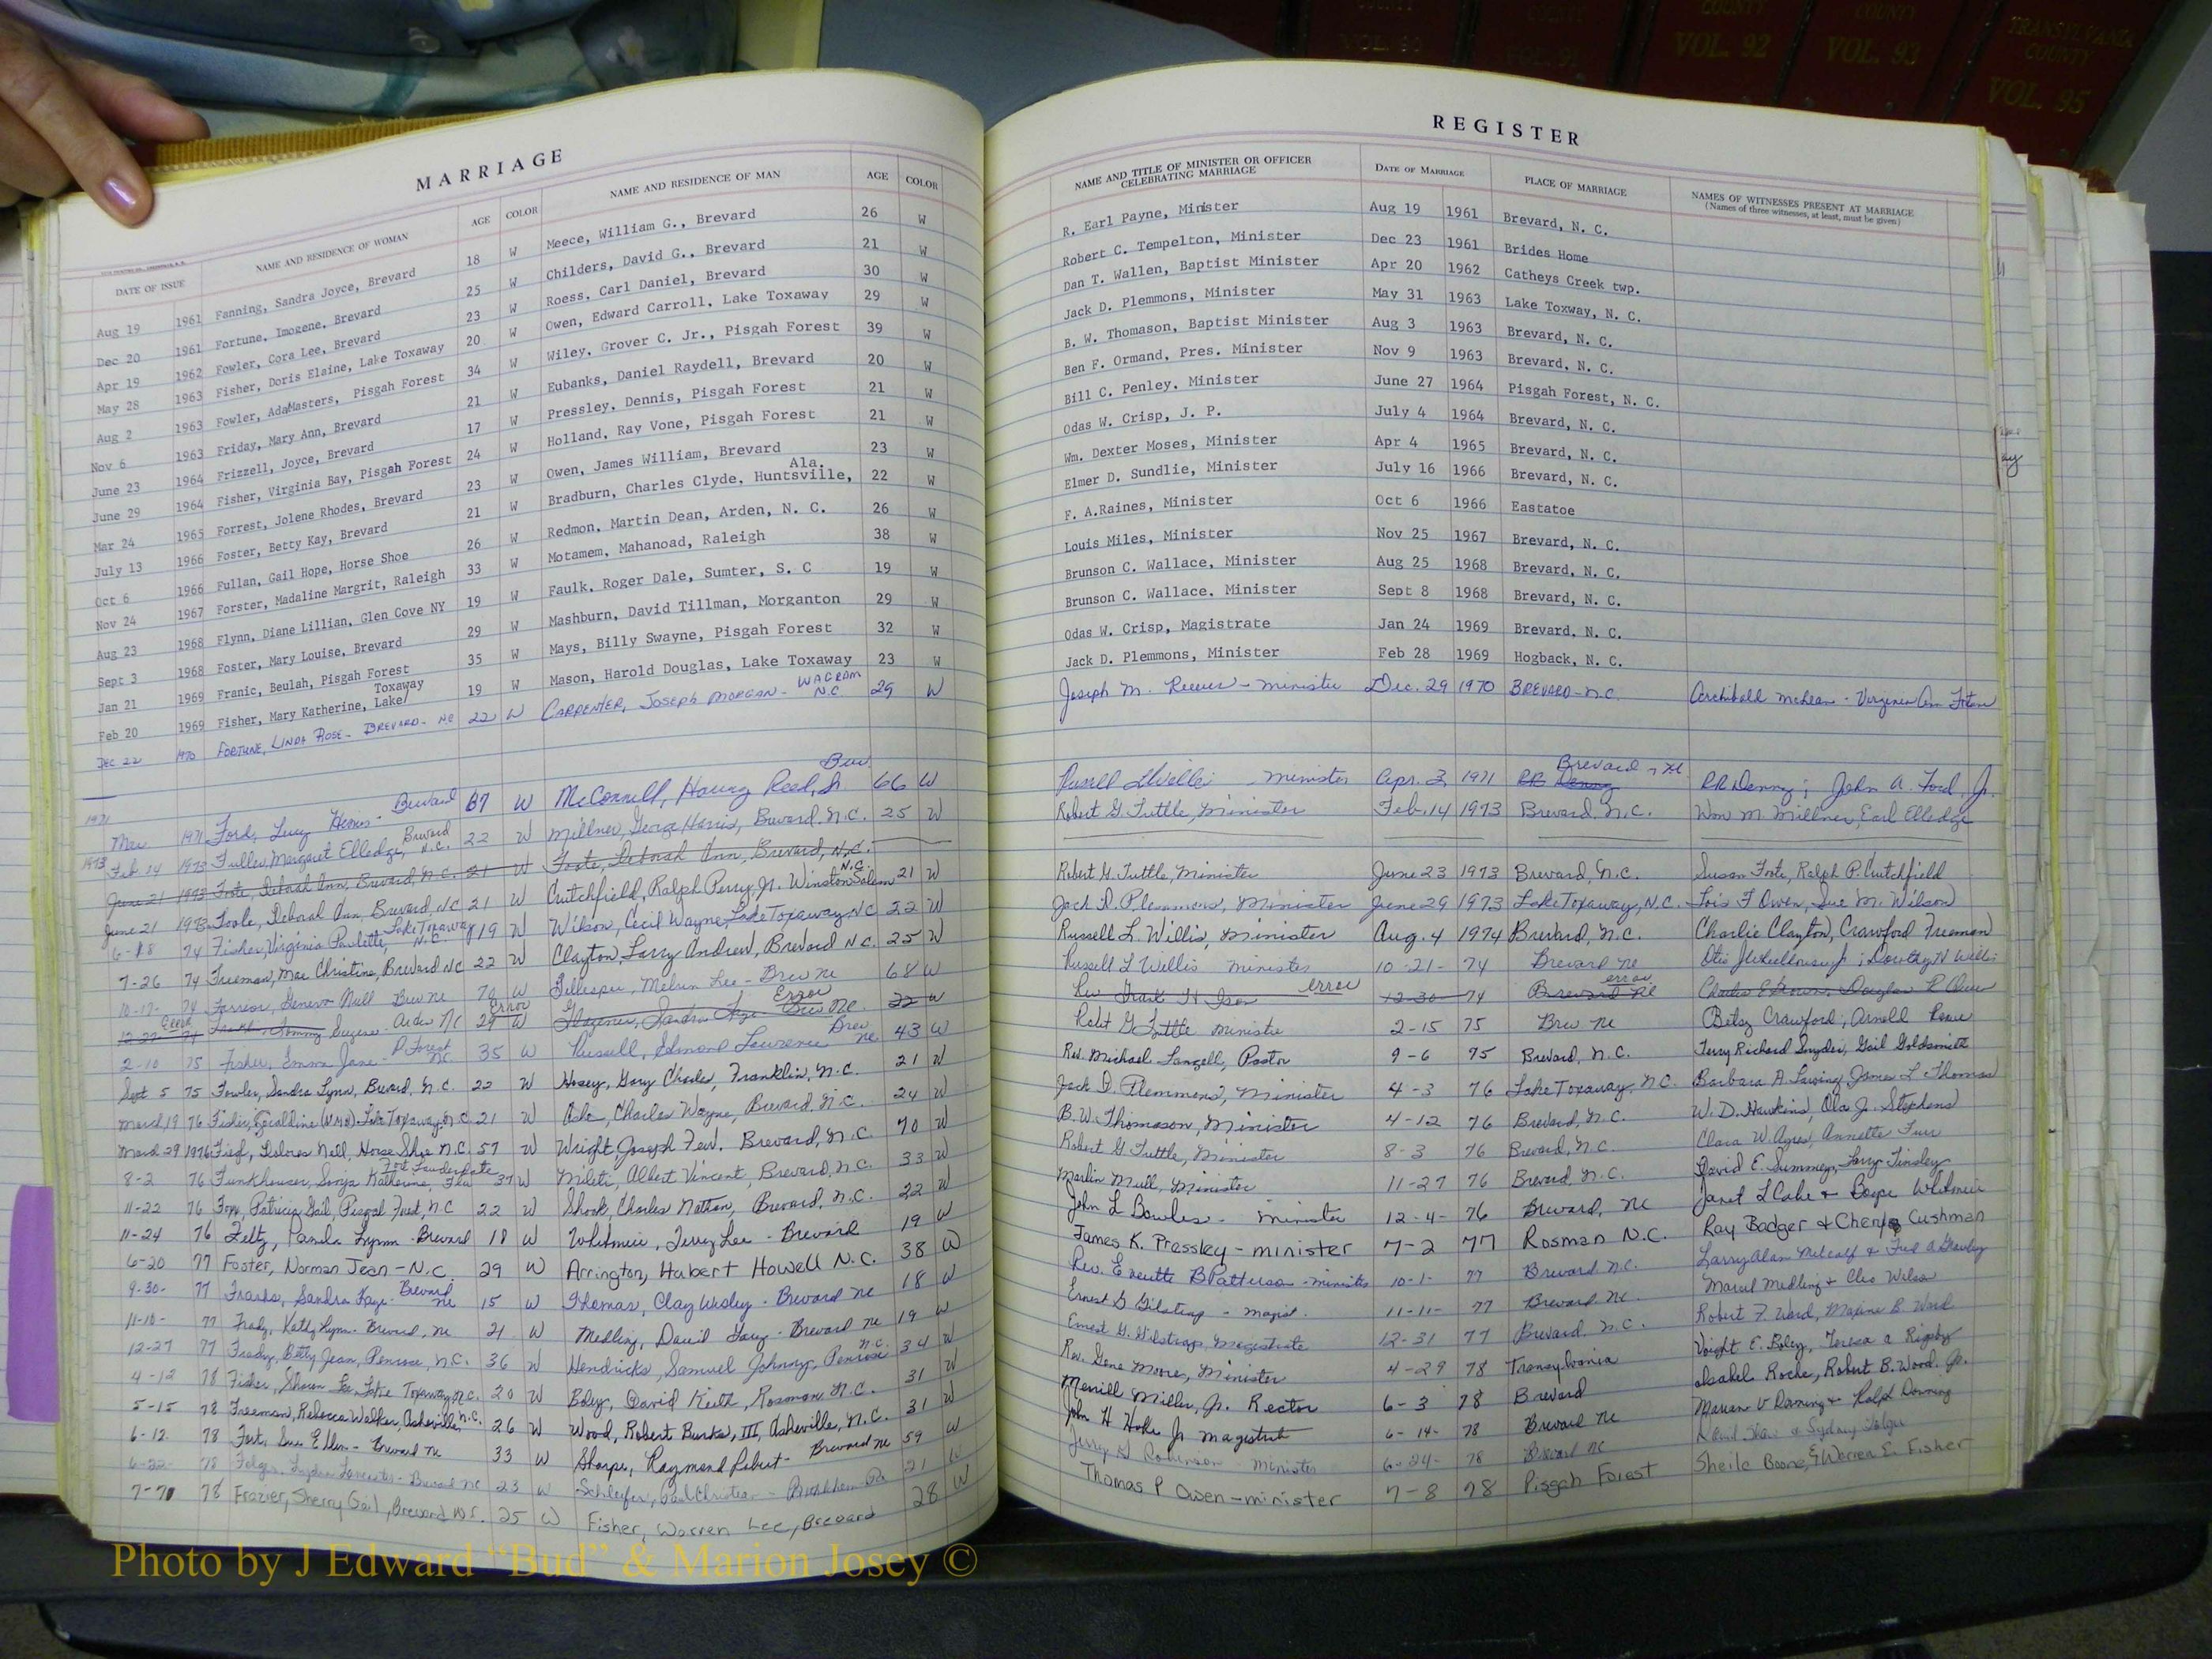 COUNTY
VOL. 92
COUNTY
VOL. 93
TRANSYLVANIA
COUNTY
VOL. 95
MARRIAGE
DATE OF ISSUE NAME AND RESIDENCE OF WOMAN AGE COLOR NAME AND RESIDENCE OF MAN AGE COLOR
Aug 19 1961 Fanning, Sandra Joyce, Brevard 18 W Meece, William G., Brevard 26 W
Dec 20 1961 Fortune, Imogene, Brevard 25 W Childers, David G., Brevard 21 W
Apr 19 1962 Fowler, Cora Lee, Brevard 23 W Roess, Carl Daniel, Brevard 30 W
May 28 1963 Fisher, Doris Elaine, Lake Toxaway 20 W Owen, Edward Carroll, Lake Toxaway 29 W
Aug 2 1963 Fowler, AdaMasters, Pisgah Forest 34 W Wiley, Grover C. Jr., Pisgah Forest 39 W
Nov 6 1963 Friday, Mary Ann, Brevard 21 W Eubanks, Daniel Raydell, Brevard 20 W
June 23 1964 Frizzell, Joyce, Brevard 17 W Pressley, Dennis, Pisgah Forest 21 W
June 29 1964 Fisher, Virginia Bay, Pisgah Forest 24 W Holland, Ray Vone, Pisgah Forest 21 W
Mar 24 1965 Forrest, Jolene Rhodes, Brevard 23 W Owen, James William, Brevard 23 W
Ala.
July 13 1966 Foster, Betty Kay, Brevard 21 W Bradburn, Charles Clyde, Huntsville, 22 W
Oct 6 1966 Fullan, Gail Hope, Horse Shoe 26 W Redmon, Martin Dean, Arden, N. C. 26 W
Nov 24 1967 Forster, Madaline Margrit, Raleigh 33 W Motamem, Mahanoad, Raleigh 38 W
Aug 23 1968 Flynn, Diane Lillian, Glen Cove NY 19 W Faulk, Roger Dale, Sumter, S. C 19 W
Sept 3 1968 Foster, Mary Louise, Brevard 29 W Mashburn, David Tillman, Morganton 29 W
Jan 21 1969 Franic, Beulah, Pisgah Forest 35 W Mays, Billy Swayne, Pisgah Forest 32 W
Toxaway
Feb 20 1969 Fisher, Mary Katherine, Lake/ 19 W Mason, Harold Douglas, Lake Toxaway 23 W
WAGRAM
DEC 22 1970 FORTUNE, LINDA ROSE - BREVARD - NC 22 W CARPENTER, JOSEPH MORGAN - N.C. 29 W
1971
Brev.
Mar 1971 Ford, Lucy - Brevard 67 W McConnell, Reed, Sr 66 W
Brevard
1973 Feb. 14 1973 Fuller, Margaret Elledge, N.C. 22 W Millner, George Harris, Brevard, N.C. 25 W
June 21 1973 Foote, Deborah Ann, Brevard, N.C. 21 W Foote, Deborah Ann, Brevard, N.C.
N.C.
June 21 1973 Foote, Deborah Ann, Brevard, NC 21 W Crutchfield, Ralph Perry, Jr. Winston Salem 21 W
Lake Toxaway
6-18 74 Fisher, Virginia Paulette, N.C. 19 W Wilson, Cecil Wayne, Lake Toxaway, NC 22 W
7-26 74 Freeman, Mae Christine, Brevard NC 22 W Clayton, Larry Andrew, Brevard N.C. 25 W
10-17- 74 Geneva Null Brev NC 70 W Gillespie, Melvin Lee - Brev NC 68 W
Error Error Error
Arden NC 29 W Sandra Brev NC 22 W
P Forest Brev
2-10 75 Fisher, Emma Jane - NC 35 W Russell, Edmond Lawrence NC 43 W
Sept 5 75 Fowler, Sandra Lynn, Brevard, N.C. 22 W Hosey, Gary Charles, Franklin, N.C. 21 W
March 19 76 Fisher, Geraldine Lake Toxaway, N.C. 21 W Charles Wayne, Brevard, N.C. 24 W
March 29 1976 Delores Nell, Horse Shoe N.C. 57 W Wright, Joseph Brevard, N.C. 70 W
Fort Lauderdale
8-2 76 Funkhouser, Sonja Katherine, Fla 37 W Mileti, Albert Vincent, Brevard, N.C. 33 W
11-22 76 Patricia Gail, Pisgah Forest, N.C 22 W Shook, Charles Nathan, Brevard, N.C. 22 W
11-24 76 Feltz, Pamela Lynn - Brevard 18 W Whitmire, Terry Lee - Brevard 19 W
6-20 77 Foster, Norman Jean - N.C 29 W Arrington, Hubert Howell N.C. 38 W
Brevard
9-30- 77 Franks, Sandra Kaye - NC 15 W Thomas, Clay Wesley - Brevard NC 18 W
11-10- 77 Frady, Kathy Lynn - Brevard, NC 21 W Medling, David - Brevard NC 19 W
N.C.
12-27 77 Frady, Betty Jean, Penrose, N.C. 36 W Hendricks, Samuel Johnny, Penrose 34 W
4-12 78 Fisher, Lake Toxaway, N.C. 20 W Boley, David Keith, Rosman N.C. 31 W
5-15 78 Freeman, Rebecca Walker, Asheville, N.C. 26 W Wood, Robert Burks, III, Asheville, N.C. 31 W
6-12 78 Fort, Sue Ellen - Brevard NC 33 W Sharpe, Raymond Robert - Brevard NC 59 W
6-22- 78 Lancaster - Brevard NC 23 W Schleifer, Paul Christian - Pa 21 W
7-70 78 Frazier, Sherry Gail, Brevard N.C. 25 W Fisher, Warren Lee, Brevard 28 W
REGISTER
NAME AND TITLE OF MINISTER OR OFFICER CELEBRATING MARRIAGE DATE OF MARRIAGE PLACE OF MARRIAGE NAMES OF WITNESSES PRESENT AT MARRIAGE
(Names of three witnesses, at least, must be given)
R. Earl Payne, Minister Aug 19 1961 Brevard, N. C.
Robert C. Tempelton, Minister Dec 23 1961 Brides Home
Dan T. Wallen, Baptist Minister Apr 20 1962 Catheys Creek twp.
Jack D. Plemmons, Minister May 31 1963 Lake Toxway, N. C.
B. W. Thomason, Baptist Minister Aug 3 1963 Brevard, N. C.
Ben F. Ormand, Pres. Minister Nov 9 1963 Brevard, N. C.
Bill C. Penley. Minister June 27 1964 Pisgah Forest, N. C.
Odas W. Crisp, J. P. July 4 1964 Brevard, N. C.
Wm. Dexter Moses, Minister Apr 4 1965 Brevard, N. C.
Elmer D. Sundlie, Minister July 16 1966 Brevard, N. C.
F. A.Raines, Minister Oct 6 1966 Eastatoe
Louis Miles, Minister Nov 25 1967 Brevard, N. C.
Brunson C. Wallace, Minister Aug 25 1968 Brevard, N. C.
Brunson C. Wallace. Minister Sept 8 1968 Brevard, N. C.
Odas W. Crisp, Magistrate Jan 24 1969 Brevard, N. C.
Jack D. Plemmons, Minister Feb 28 1969 Hogback, N. C.
Joseph M. Reeves - minister Dec. 29 1970 BREVARD - N.C. Archibald McLean - Virginia Ann
Brevard - NC
Russell L Willis minister Apr. 3, 1971 RR Denny RR Denny; John A. Ford, Jr.
Robert G. Tuttle, Minister Feb. 14 1973 Brevard, N.C. Wm M. Millner, Earl Elledge
Robert G. Tuttle, Minister June 23 1973 Brevard, N.C. Susan Foote, Ralph P. Crutchfield
Jack D. Plemmons, Minister June 29 1973 Lake Toxaway, N.C. Lois F Owen, Sue M. Wilson
Russell L. Willis, Minister Aug. 4 1974 Brevard, N.C. Charlie Clayton, Crawford Freeman
Russell L Willis minister 10-21- 74 Brevard NC Dorothy N Willis
error error
Rev Frank H. 12-30- 74 Brevard NC Charles E Douglas R
Robt G Tuttle minister 2-15 75 Brev NC Betsy Crawford; Arnold
Rev. Michael Langell, Pastor 9-6 75 Brevard, N.C. Terry Richard Snyder, Gail Goldsmith
Jack D. Plemmons, Minister 4-3 76 Lake Toxaway, N.C. Barbara A. James L Thomas
B.W. Thomason, Minister 4-12 76 Brevard, N.C. W. D. Hawkins, Ola J. Stephens
Robert G Tuttle, Minister 8-3 76 Brevard, N.C. Clara W. Annette Furr
Marlin Mull, Minister 11-27 76 Brevard, N.C. David E. Summey, Larry Tinsley
John L Bowles - minister 12-4- 76 Brevard, NC Janet L Cake + Whitmire
James K. Pressley - minister 7-2 77 Rosman N.C. Ray Badger + Cheryl Cushman
Rev. Everette B Patterson - minister 10-1- 77 Brevard N.C. Larry Alan Metcalf +
Ernest G Gilstrap - magist. 11-11- 77 Brevard NC. Medling + Cleo Wilson
Ernest G. Gilstrap, Magistrate 12-31 77 Brevard, N.C. Robert F. Ward, Maxine B. Ward
Rev. Gene Moore, Minister 4-29 78 Transylvania Voight E. Boley, Teresa A Rigsby
Merrill Miller, Jr. Rector 6-3 78 Brevard Isabele Roche, Robert B. Wood, Jr.
John H Jr magistrate 6-14- 78 Brevard NC Marian V Dorning + Ralph Dorning
Jerry D Robinson - Minister 6-24- 78 Brevard NC
Thomas P Owen - minister 7-8 78 Pisgah Forest Sheila Boone, & Warren E. Fisher
Photo by J Edward “Bud” & Marion Josey ©